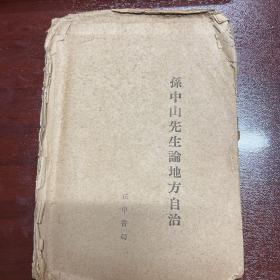 孫中山先生論地方自治
正中書局